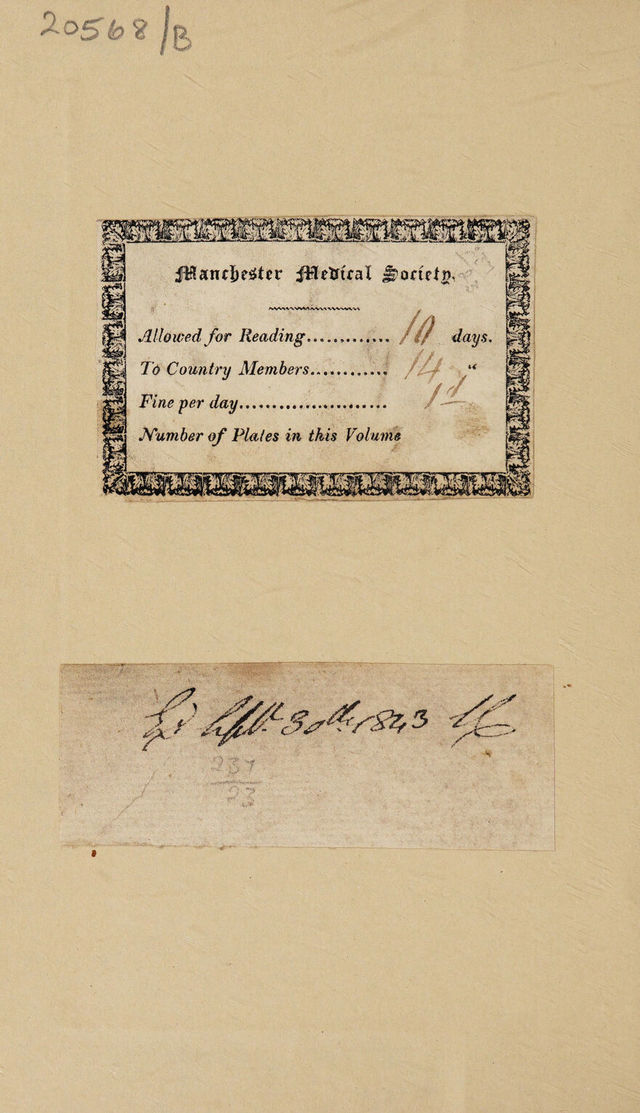 20568/B
Manchester Medical Society.
Allowed for Reading............. 10 days.
To Country Members............ 14 "
Fine per day....................... 1d
Number of Plates in this Volume
Exd Septr. 30th. 1843
237
23